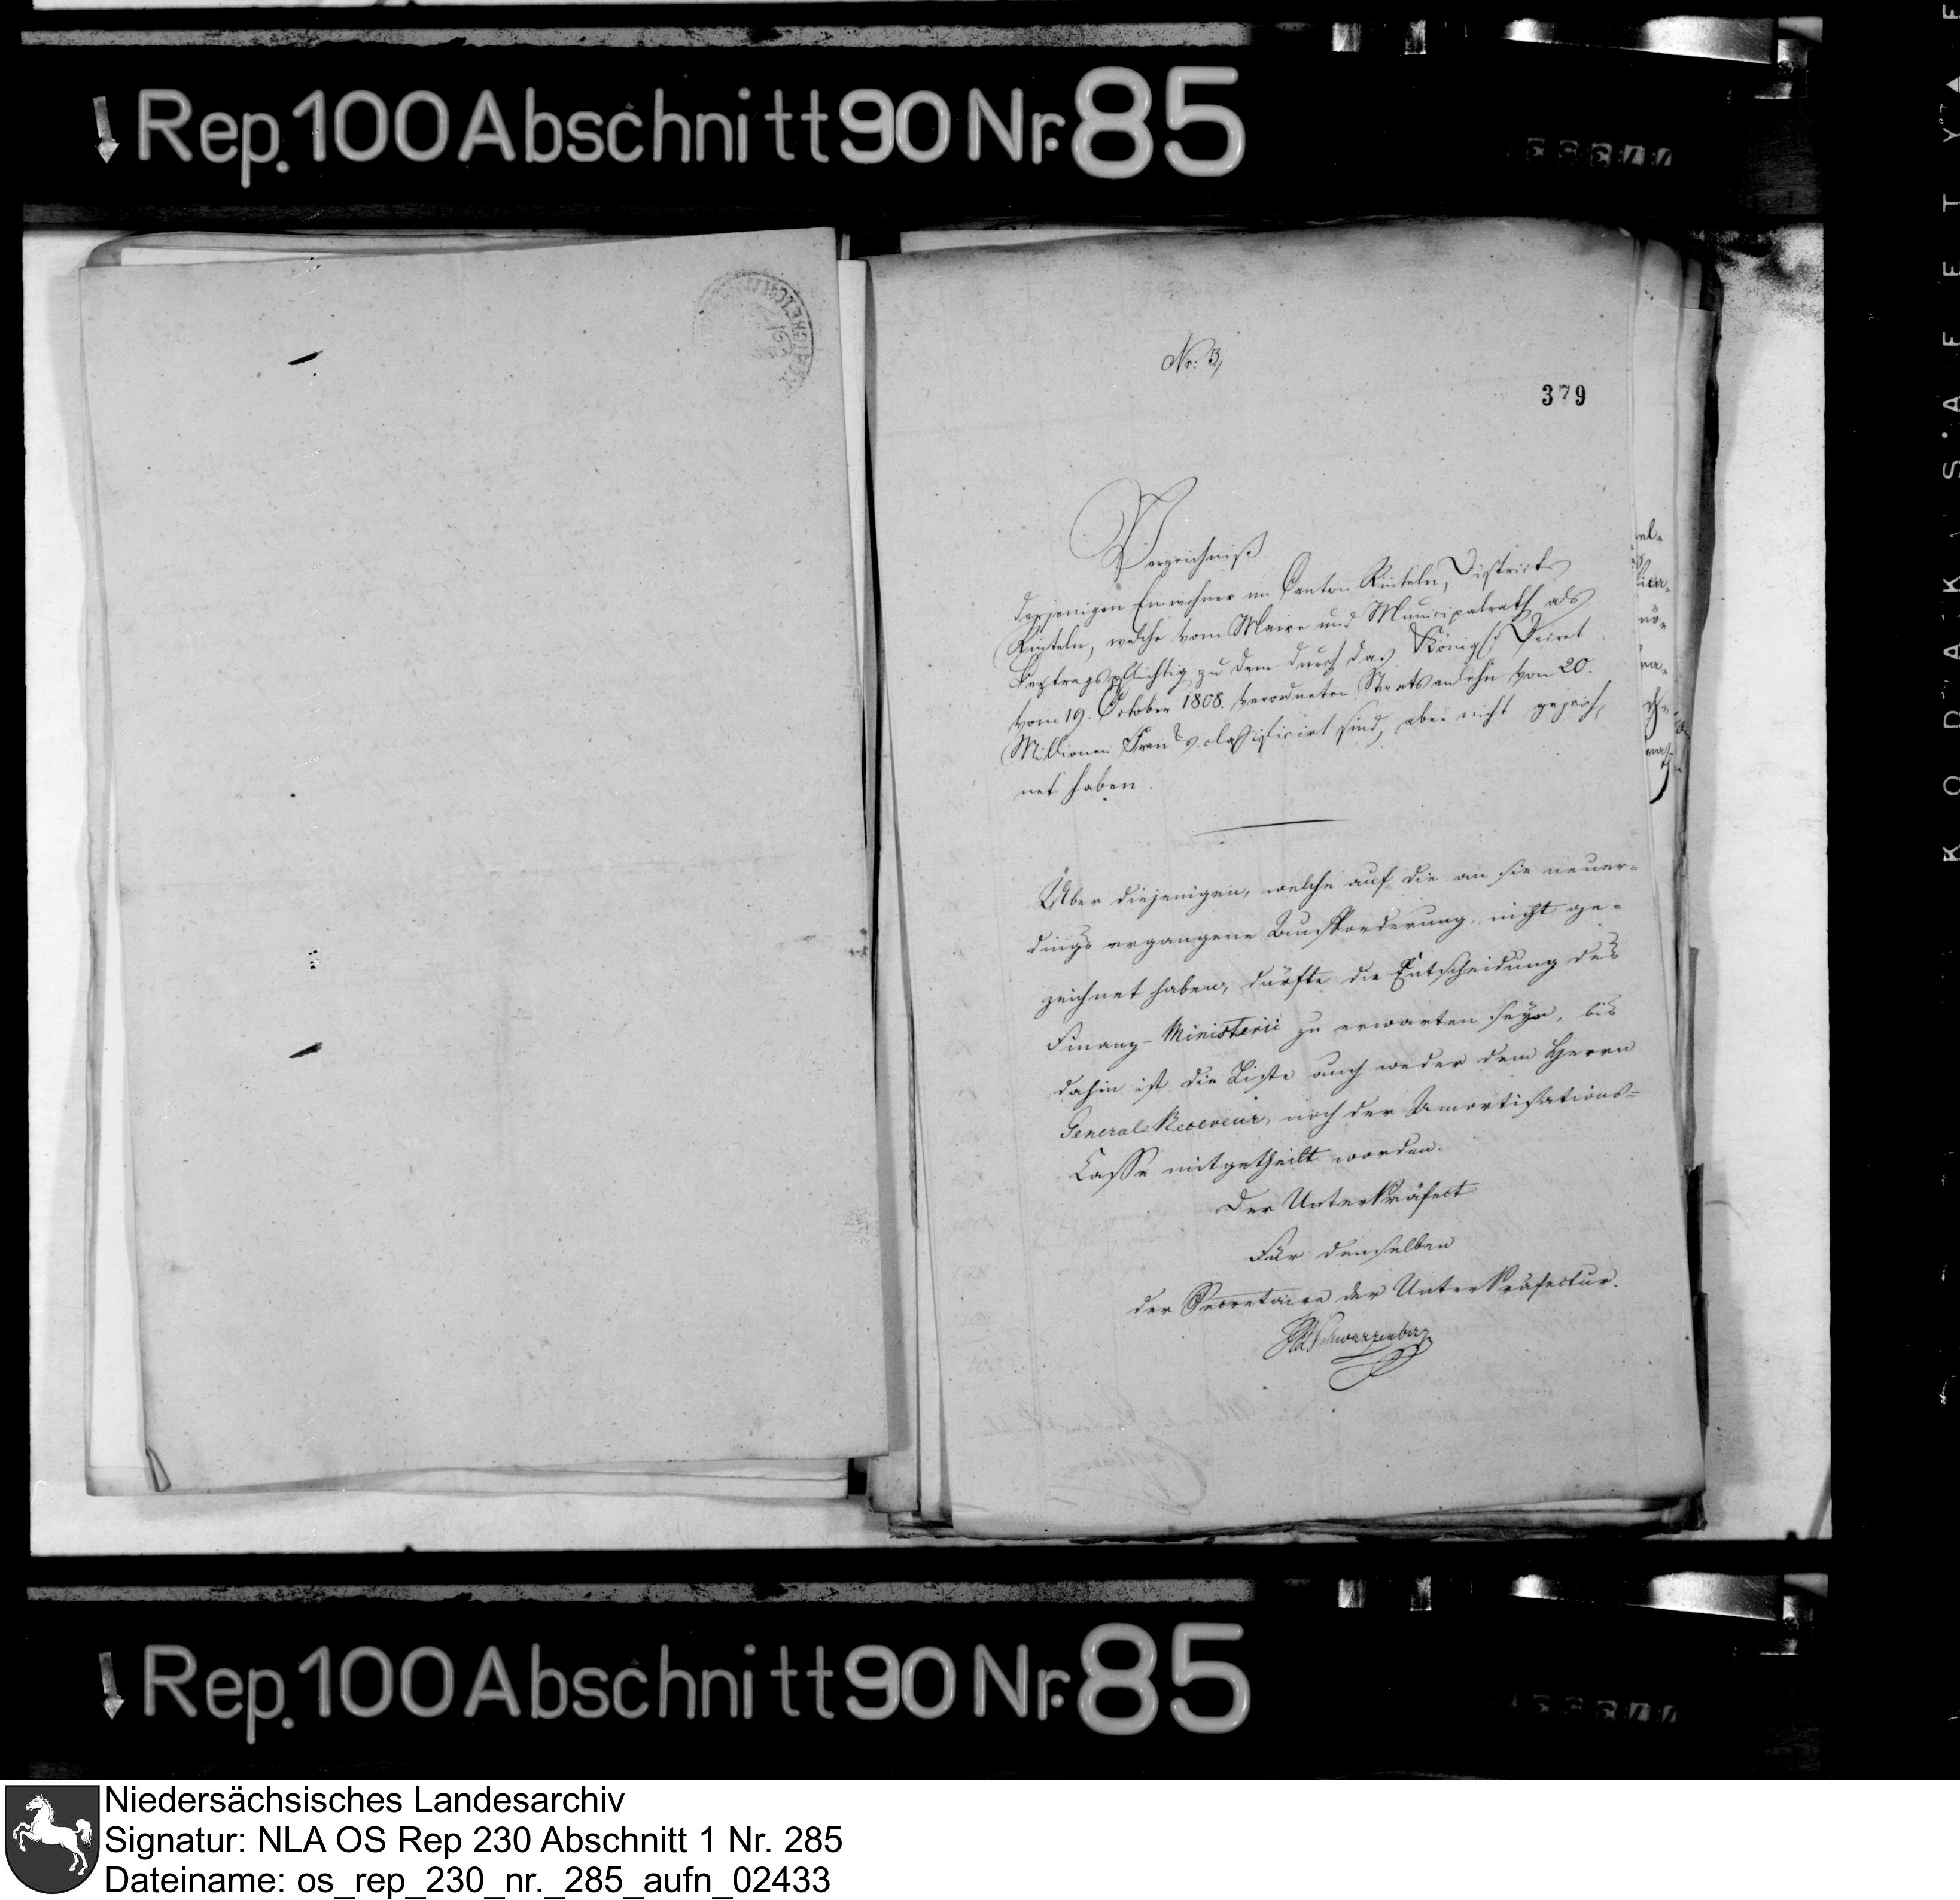 Rep. 100 Abschnitt 90 Nr. 85
Nr: 3,
379
Verzeichniß
derjenigen Einwohner im Canton Rinteln, Districts
Rinteln, welche vom Maire und Municipalrath als
Beytragspflichtig zu dem durch das Königl. Decret
vom 19. October 1808. verordneten Staatsanlehn von 20.
Millionen Francs classificirt sind, aber nicht gezeich,
net haben.
Über diejenigen, welche auf die an sie neuer-
dings ergangene Aufforderung, nicht ge-
zeichnet haben, dürfte die Entscheidung des
Finanz-Ministerii zu erwarten seyn, bis
dahin ist die Liste auch weder dem Herrn
General-Receveur, noch der Amortisations-
Casse mitgetheilt worden.
Der Unterpräfect
Für denselben
der Secretaire der Unterpräfectur.
Schwarzenberg
Rep. 100 Abschnitt 90 Nr. 85
Niedersächsisches Landesarchiv
Signatur: NLA OS Rep 230 Abschnitt 1 Nr. 285
Dateiname: os_rep_230_nr._285_aufn_02433